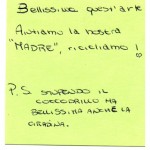 Bellissima quest'arte
Aiutiamo la nostra
"MADRE", ricicliamo!
P.S. STUPENDO IL
COCCODRILLO MA
BELLISSIMA ANCHE LA
GIRAFFA.